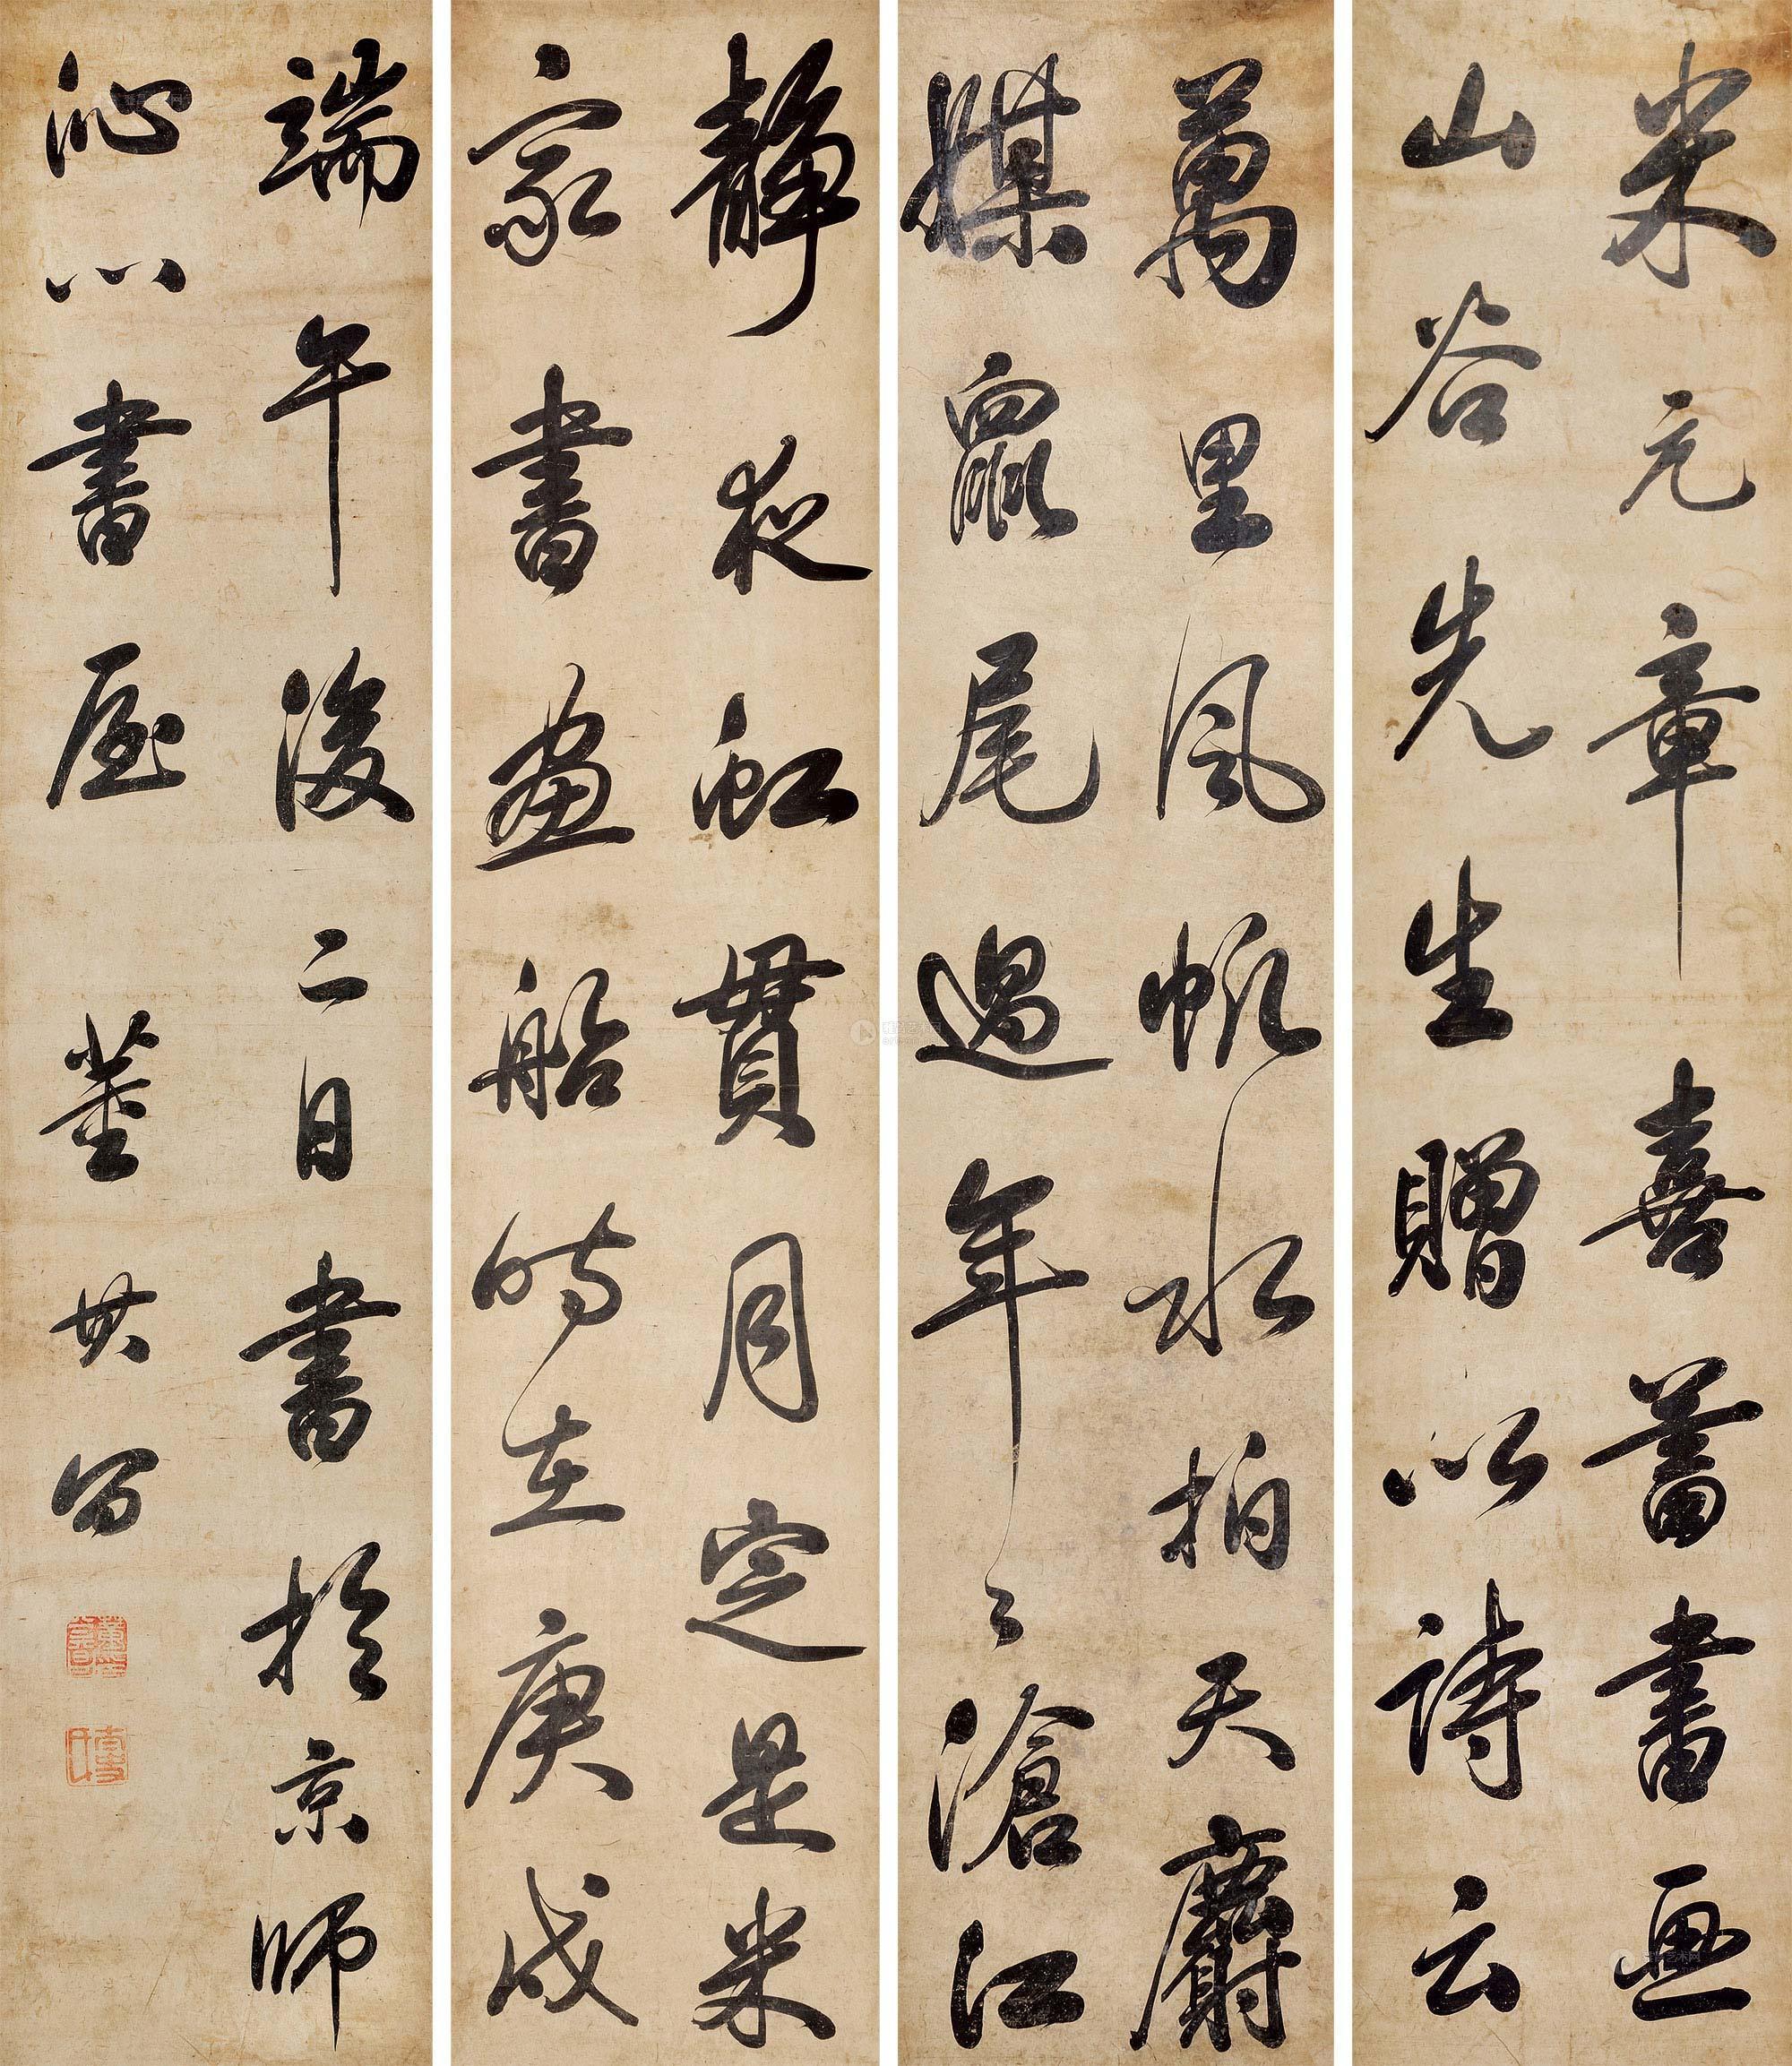 米元章喜蓄書画
山谷先生贈以詩云
萬里風帆水拍天麝
媒鼠尾過年々滄江
靜夜虹貫月定是米
家書畫船時在庚戌
端午後二日書於京師
沁心書屋 董其昌
董其昌印
太史氏